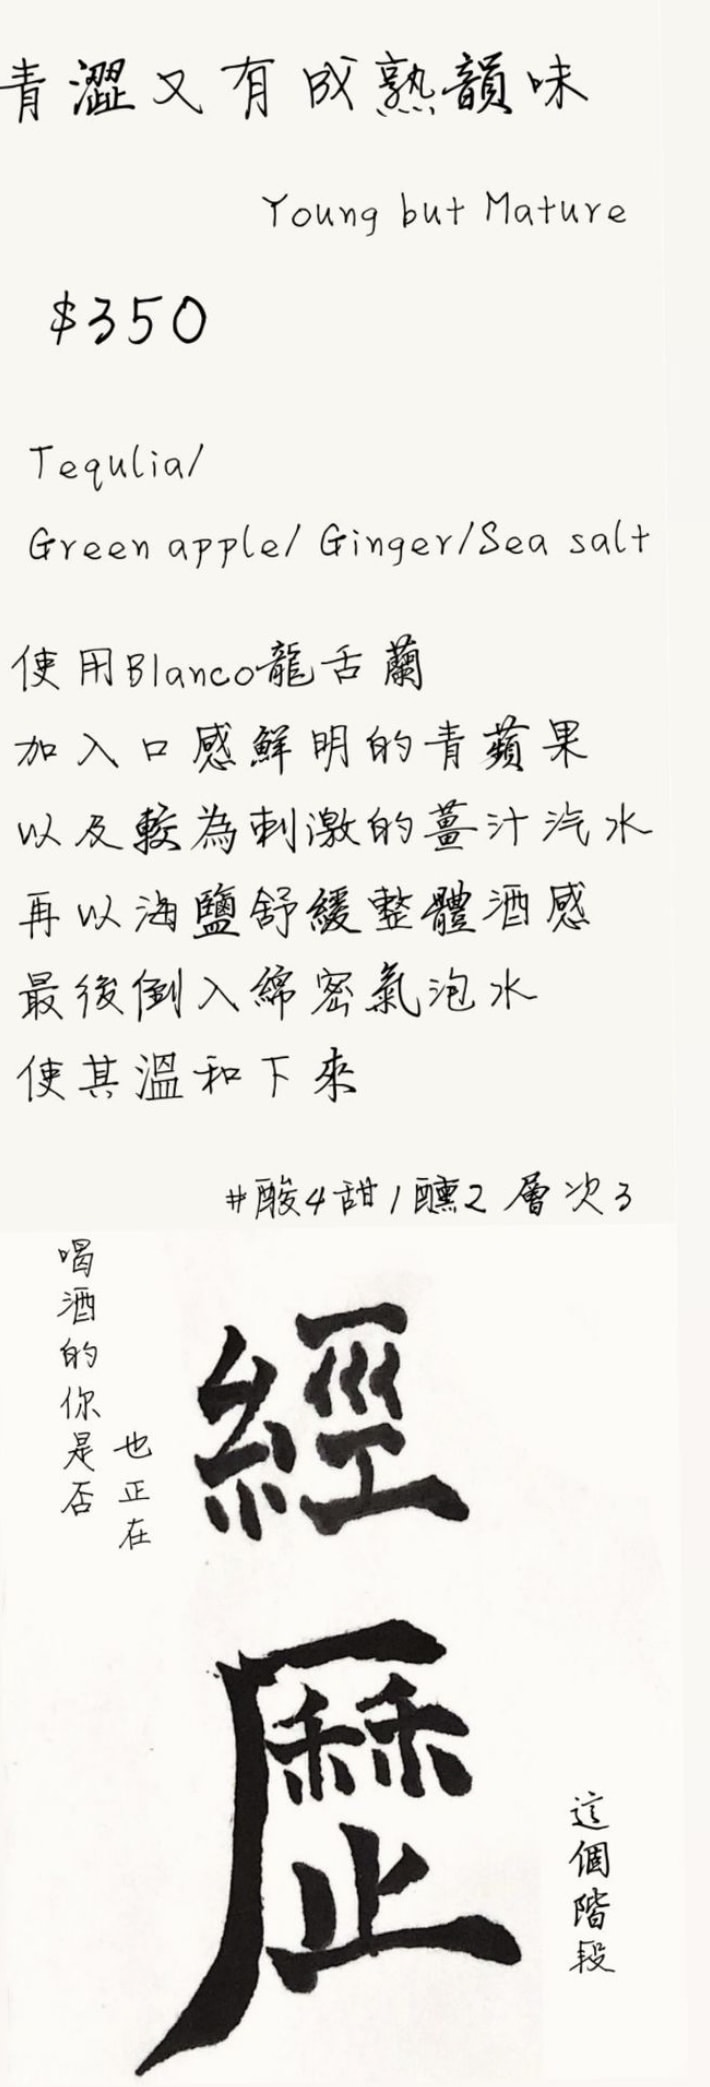 青澀又有成熟韻味
Young but Mature
$350
Tequlia/
Green apple/ Ginger/Sea salt
使用Blanco龍舌蘭
加入口感鮮明的青蘋果
以及較為刺激的薑汁汽水
再以海鹽舒緩整體酒感
最後倒入綿密氣泡水
使其溫和下來
#酸4甜1醺2層次3
喝酒的你是否
也正在
經歷
這個階段